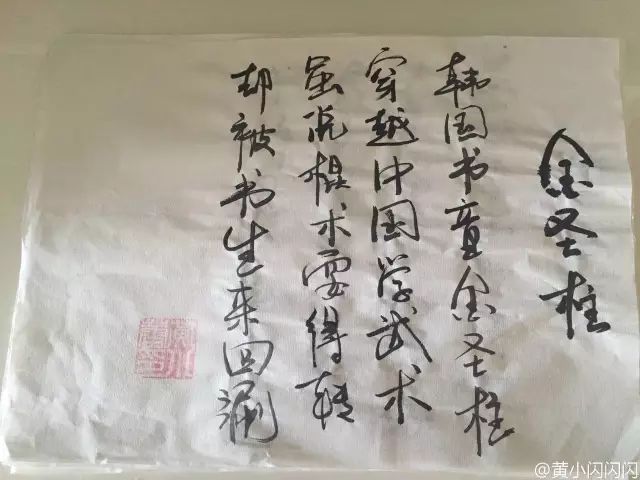 金圣柱
韩国书童金圣柱
穿越中国学武术
虽说棍术耍得精
却被书生来回漏
@黄小闪闪闪